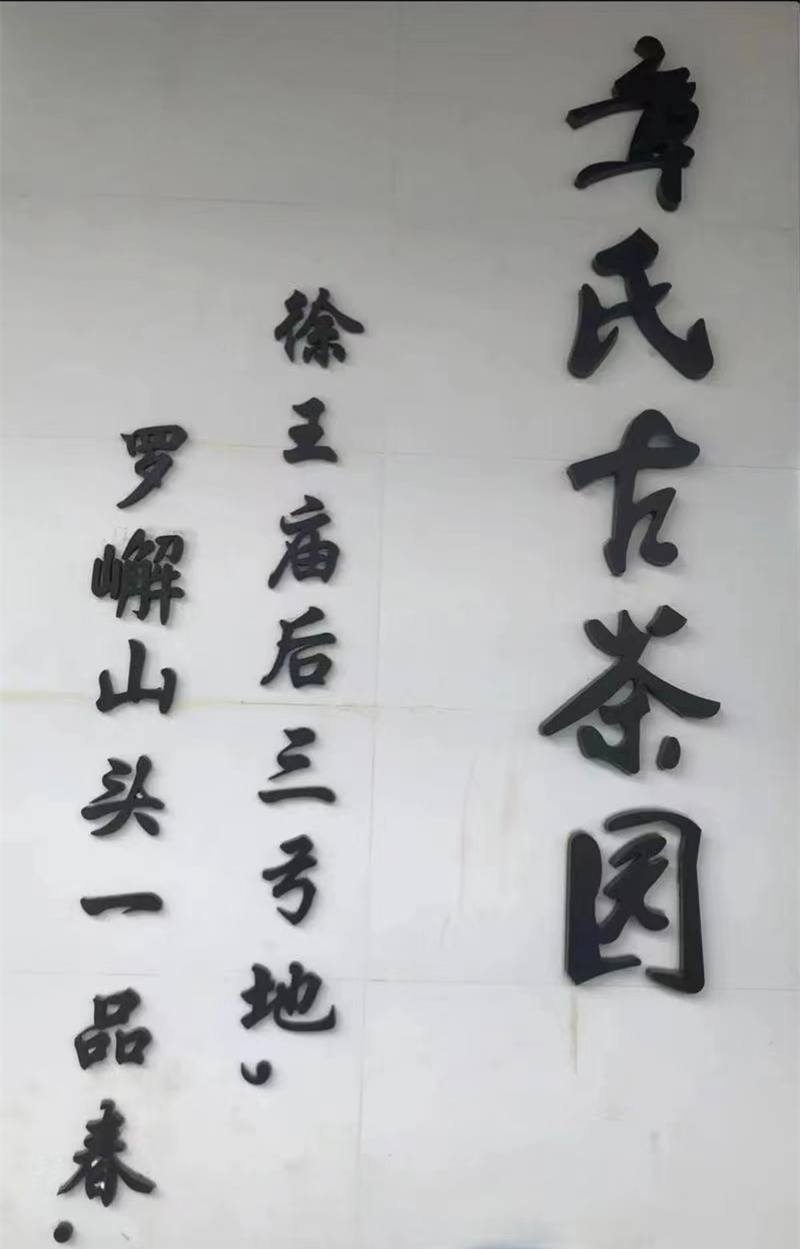 章氏古茶园
徐王庙后三弓地，
罗嶰山头一品春.